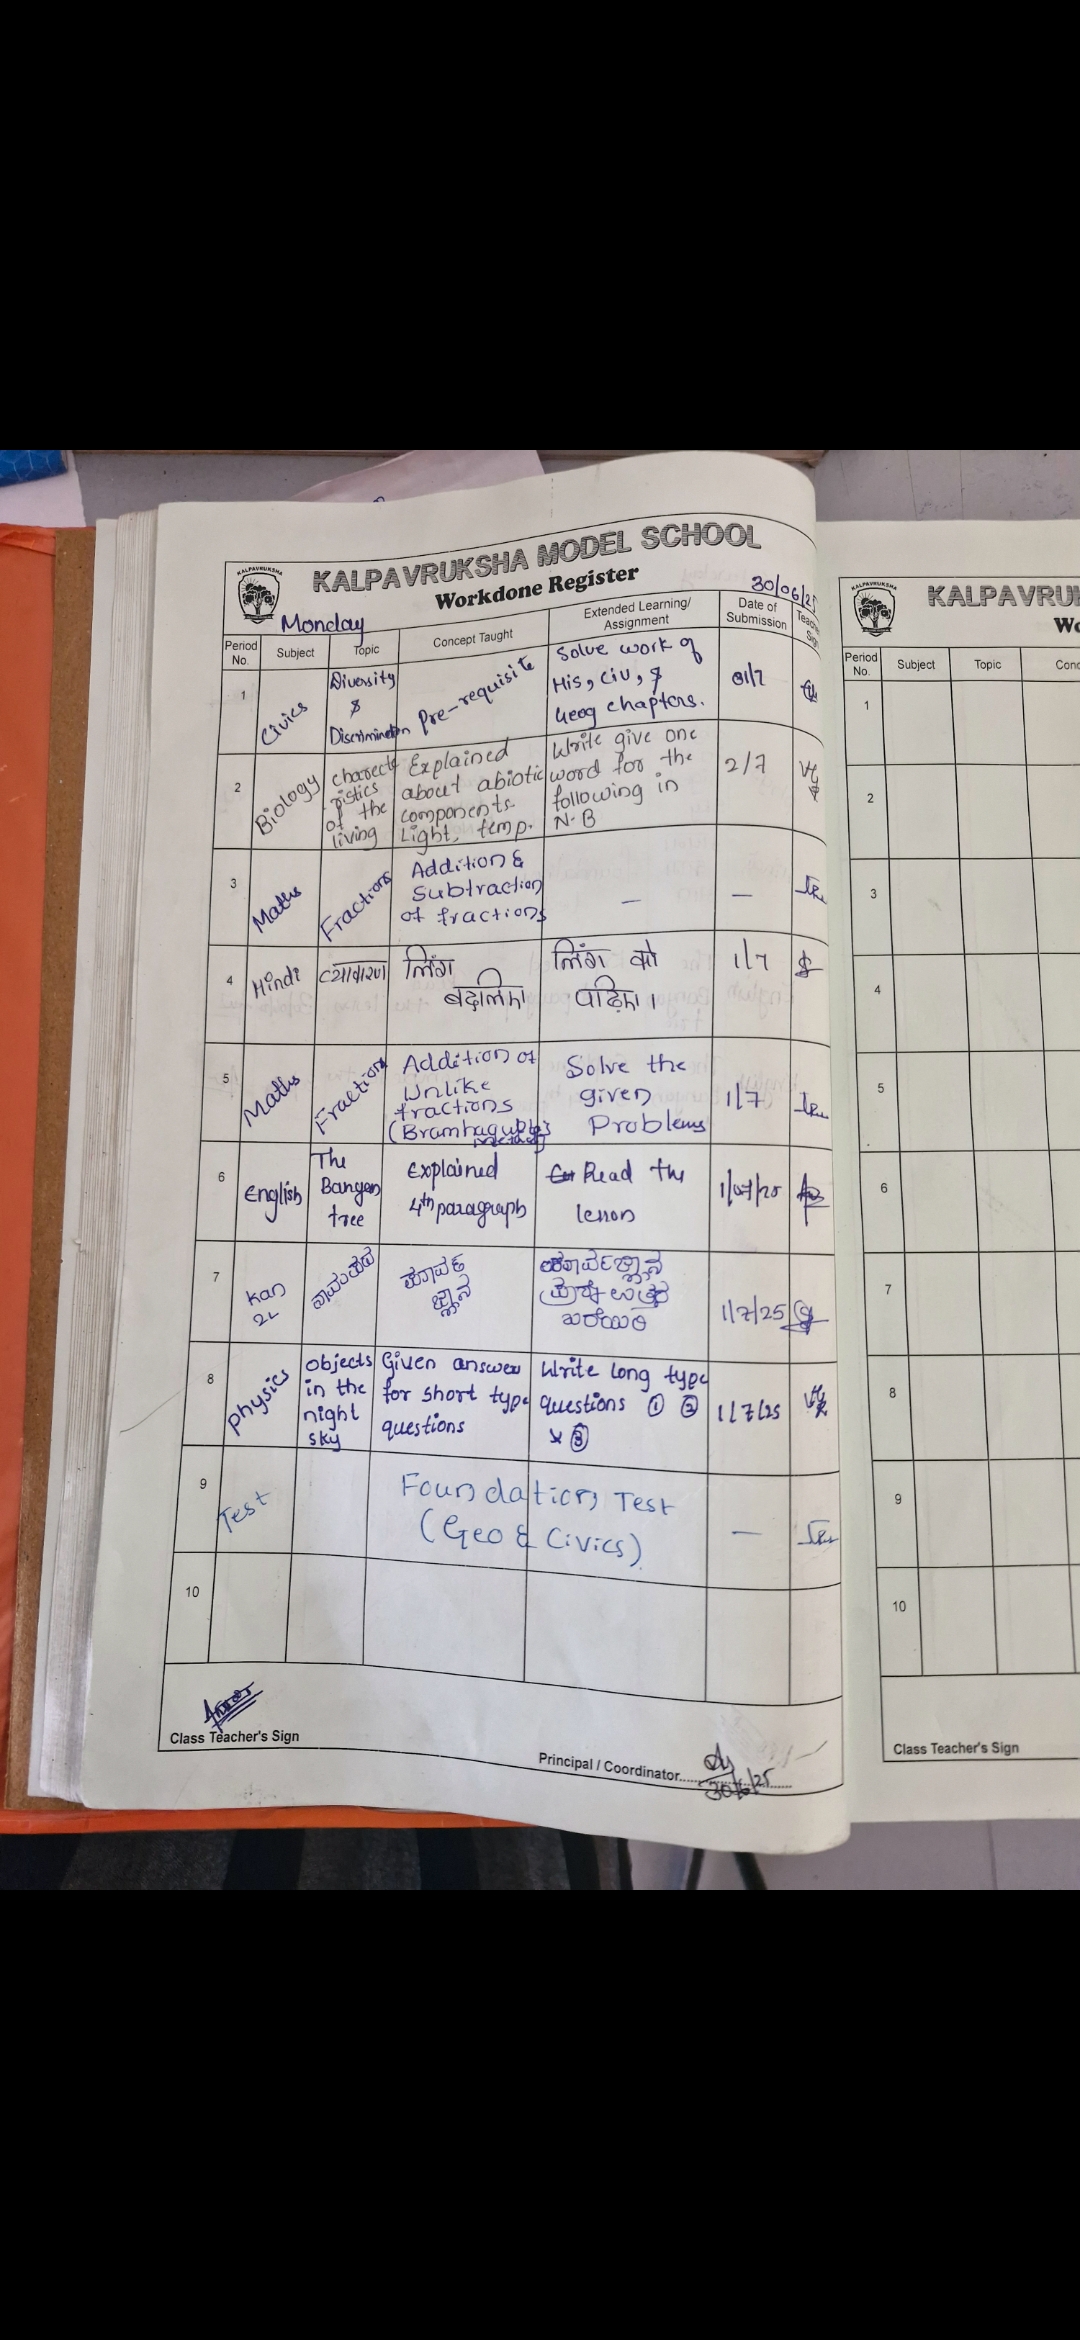 KALPAVRUKSHA
KALPAVRUKSHA MODEL SCHOOL
Workdone Register
30/06/25
Monday
Period No.
Subject
Topic
Concept Taught
Extended Learning/ Assignment
Date of Submission
1
Civics
Diversity
&
Discrimination
Pre-requisite
Solve work of
His, Civ, &
Geog chapters.
01/7
2
Biology
charecte
ristics
of the
living
Explained
about abiotic
components-
Light, temp.
Write give one
word for the
following in
N.B
2/7
3
Maths
Fractions
Addition &
Subtraction
of fractions
—
—
4
Hindi
व्याकरण
लिंग
बदलिए
लिंग को
पढ़िए।
1/7
5
Maths
Fractions
Addition of
Unlike
fractions
(Bramhagupta's
method)
Solve the
given
Problems
1/7
6
English
The
Bangan
tree
Explained
4th paragraph
Read the
lesson
1/07/25
7
Kan
2L
1/7/25
8
Physics
objects
in the
night
sky
Given answer
for short type
questions
Write long type
questions ① ②
③
1/7/25
9
Test
Foundation Test
(Geo & Civics)
—
10
Class Teacher's Sign
Principal / Coordinator
30/6/25
KALPAVRUKSHA
KALPAVRU
Wo
Period No.
Subject
Topic
Conc
1
2
3
4
5
6
7
8
9
10
Class Teacher's Sign